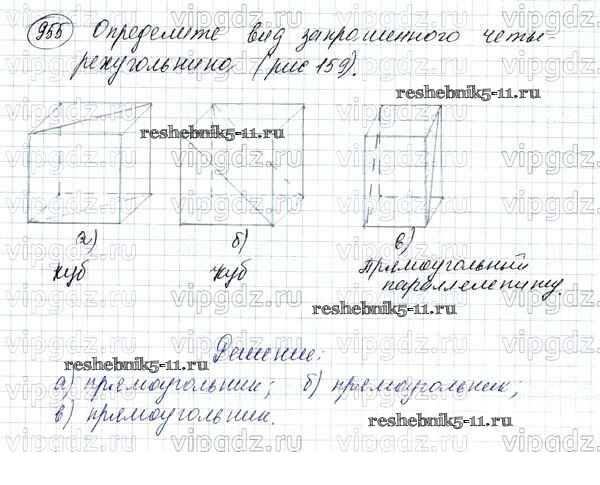 955 Определите вид закрашенного четы-
рехугольника (рис 159).
reshebnik5-11.ru
reshebnik5-11.ru
reshebnik5-11.ru
а) б) в)
куб куб Прямоугольный
параллелепипед.
reshebnik5-11.ru
Решение:
reshebnik5-11.ru
а) прямоугольник; б) прямоугольник;
в) прямоугольник.
reshebnik5-11.ru
vipgdz.ru